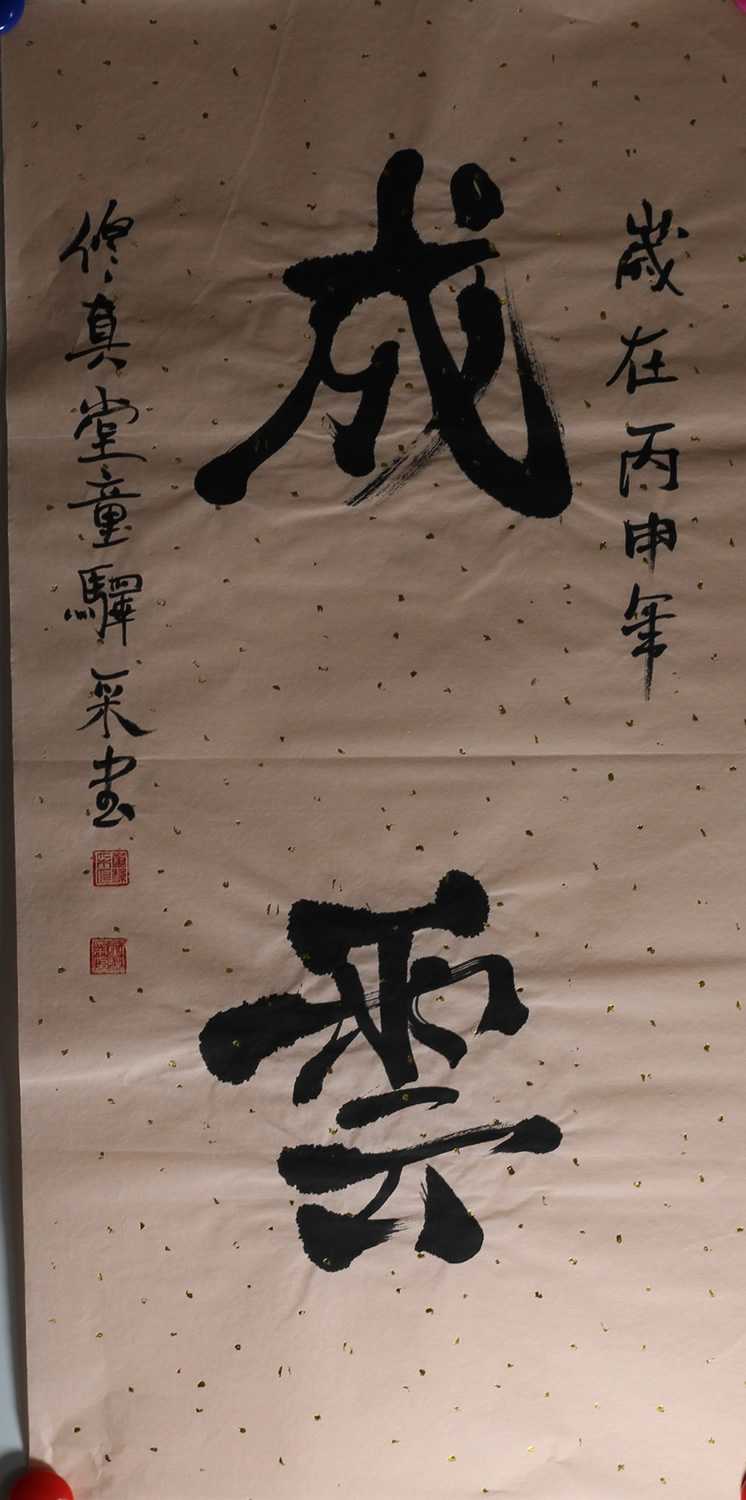 歲在丙申年
成雲
修真堂童驛采書